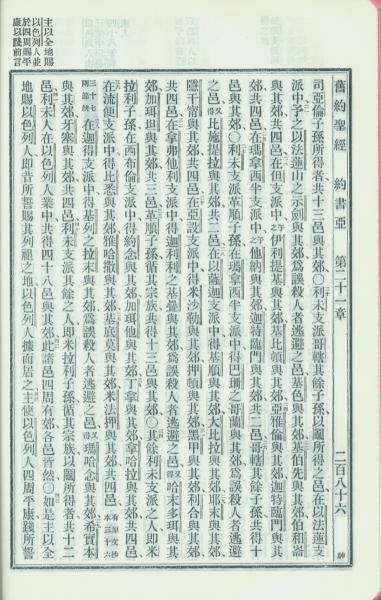 舊約聖經 約書亞 第二十一章 二百八十六
司亞倫子孫所得者共十三邑與其郊〇利未支派哥轄其餘子孫以鬮所得之邑在以法蓮支
派中予之以法蓮山之示劍與其郊爲誤殺人者逃避之邑基色與其郊基伯先與其郊伯和崙
與其郊共四邑在但支派中予之伊利提基與其郊基比頓與其郊亞雅倫與其郊迦特臨門與其
郊共四邑在瑪拿西半支派中予之他納與其郊迦特臨門與其郊共二邑哥轄其餘子孫共得十
邑與其郊〇利未支派革順子孫在瑪拿西半支派中得巴珊之哥蘭與其郊爲誤殺人者逃避
之邑又得比施提拉與其郊共二邑在以薩迦支派中得基順與其郊大比拉與其郊耶末與其郊
隱干甯與其郊共四邑在亞設支派中得米沙勒與其郊押頓與其郊黑甲與其郊利合與其郊
共四邑在拿弗他利支派中得迦利利之基疊與其郊爲誤殺人者逃避之邑又得哈末多珥與其
郊加珥坦與其郊共三邑革順子孫循其宗族共得十三邑與其郊〇其餘利未支派之人即米
拉利子孫在西布倫支派中得約念與其郊加珥他與其郊丁拿與其郊拿哈拉與其郊共四邑
在流便支派中得比悉與其郊雅哈撒與其郊基底莫與其郊米法押與其郊共四邑
在迦得支派中得基列之拉末與其郊爲誤殺人者逃避之邑又得瑪哈念與其郊希實本
與其郊牙塞與其郊共四邑利未支派其餘之人即米拉利子孫循其宗族以鬮所得者共十二
邑利未人在以色列人業中共得四十八邑與其郊此諸邑四周有郊各邑皆然〇如是主以全
地賜以色列人即昔所誓賜其列祖之地以色列人據而居之主使以色列人四周平康踐所誓
主以全地賜
以色列人並
於四周賜平
康以踐前言